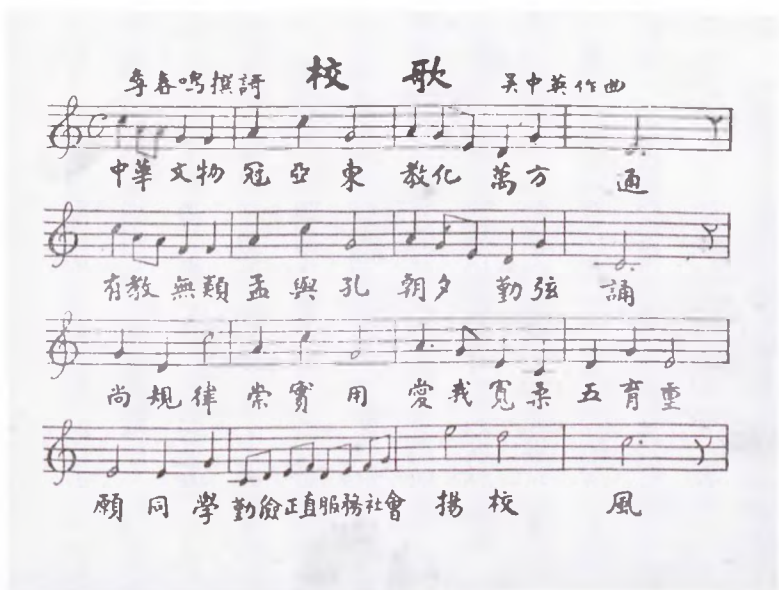 李春鳴撰詞 校歌 吳中英作曲
中華文物冠亞東教化萬方通
有教無類孟與孔朝夕勤弦誦
尚規律崇實用愛我寬柔五育重
願同學勤儉正直服務社會揚校風